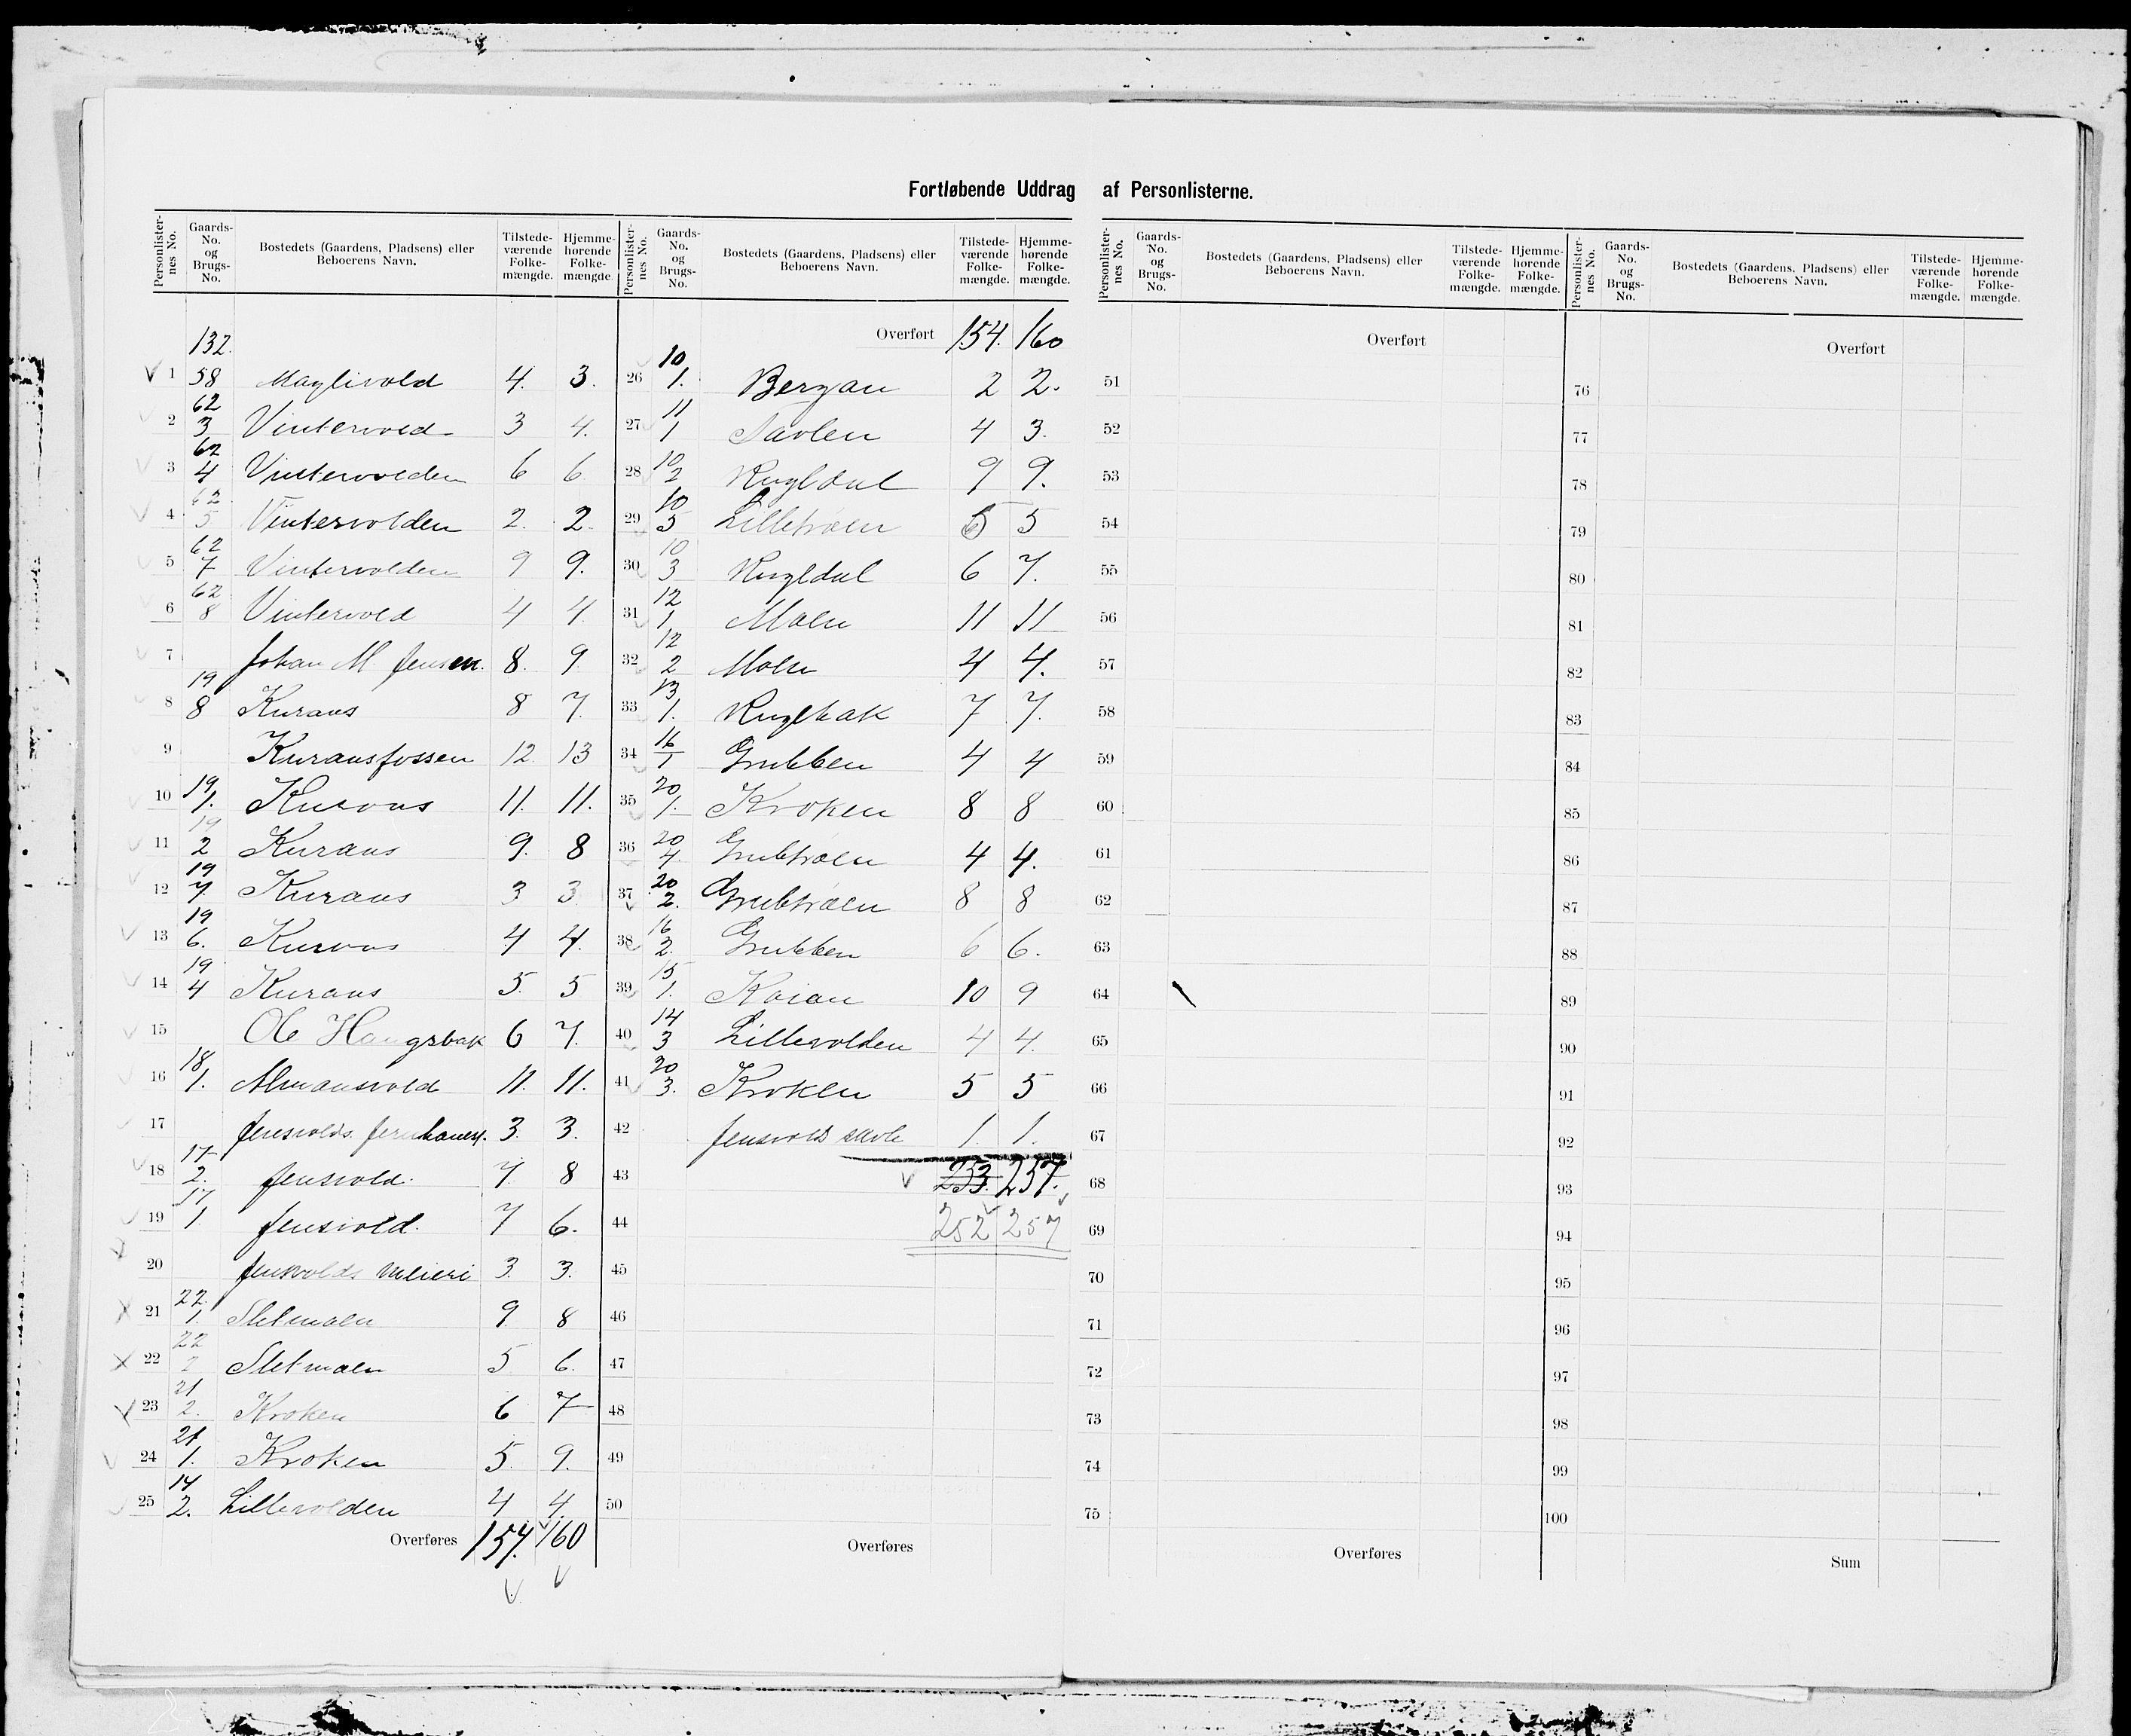 Fortløbende Uddrag af Personlisterne.
Personlister-nes No. Gaards-No. og Brugs-No. Bostedets (Gaardens, Pladsens) eller Beboerens Navn. Tilstede-værende Folke-mængde. Hjemme-hørende Folke-mængde.
Personlister-nes No. Gaards-No. og Brugs-No. Bostedets (Gaardens, Pladsens) eller Beboerens Navn. Tilstede-værende Folke-mængde. Hjemme-hørende Folke-mængde.
Personlister-nes No. Gaards-No. og Brugs-No. Bostedets (Gaardens, Pladsens) eller Beboerens Navn. Tilstede-værende Folke-mængde. Hjemme-hørende Folke-mængde.
Personlister-nes No. Gaards-No. og Brugs-No. Bostedets (Gaardens, Pladsens) eller Beboerens Navn. Tilstede-værende Folke-mængde. Hjemme-hørende Folke-mængde.
1 132/58 4. 3.
2 62/3 Vintervold 3 4.
3 62/4 Vintervolden 6 6
4 62/5 Vintervolden 2. 2.
5 62/7 Vintervolden 9 9.
6 62/8 Vintervold 4 4.
7 Johan M. Jensen. 8. 9
8 19/8 Kuraas 8 7.
9 Kuraasfossen 12. 13
10 19/1. Kuraas 11. 11.
11 19/2 Kuraas 9. 8
12 19/7 Kuraas 3 3
13 19/6. Kuraas 4 4.
14 19/4 Kuraas 5. 5
15 Ole Haugsbak 6 7.
16 18/1. Almaasvold 11. 11.
17 Jensvolds 3. 3.
18 17/2. Jensvold. 7. 8
19 17/1. Jensvold. 7 6.
20 Jensvolds meieri 3. 3.
21 22/1. Sletmoen 9. 8
22 22/2 Sletmoen 5 6.
23 21/2. Kroken 6 7
24 21/1. Kroken 5. 9.
25 14/2. Lillevolden 4 4.
Overføres 154. 160
Overført 154. 160
26 10/1. Bergan 2 2.
27 11/1 4 3.
28 10/2 Rugldal 9 9.
29 10/5 Lilletrøen 5 5
30 10/3 Rugldal 6 7.
31 12/1 Moen 11 11
32 12/2 Moen 4 4.
33 13/1. Ruglbak 7 7.
34 16/1 Grubben 4 4
35 20/1. Kroken 8 8
36 20/4. Grubtrøen 4 4.
37 20/2. Grubtrøen 8 8
38 16/2. Grubben 6 6.
39 15/1. Kaian 10 9
40 14/3 Lillevolden 4 4.
41 20/3. Kroken 5 5
42 Jensvold skole 1. 1.
43 253. 257.
44 252 257
45
46
47
48
49
50
Overføres
Overført
51
52
53
54
55
56
57
58
59
60
61
62
63
64
65
66
67
68
69
70
71
72
73
74
75
Overføres
Overført
76
77
78
79
80
81
82
83
84
85
86
87
88
89
90
91
92
93
94
95
96
97
98
99
100
Sum